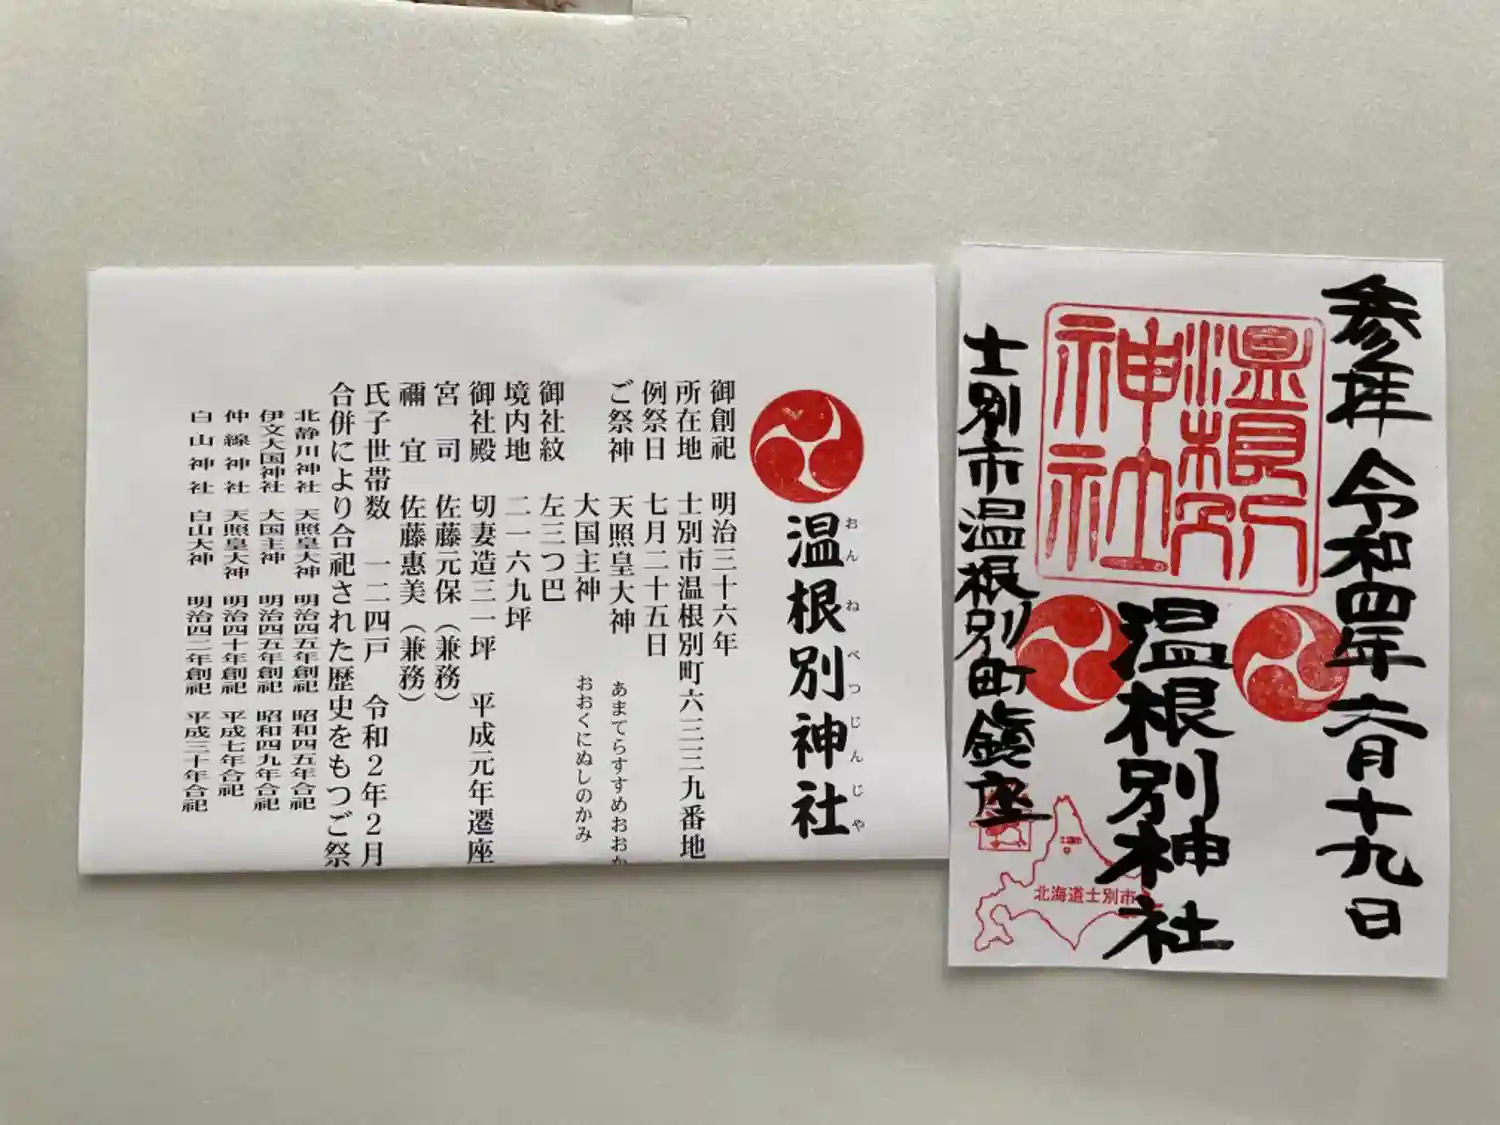 温根別神社
おんねべつじんじゃ
御創祀 明治三十六年
所在地 士別市温根別町六三三九番地
例祭日 七月二十五日
ご祭神 天照皇大神 あまてらすすめおおか
大国主神 おおくにぬしのかみ
御社紋 左三つ巴
境内地 二一六九坪
御社殿 切妻造三一坪 平成元年遷座
宮司 佐藤元保（兼務）
禰宜 佐藤惠美（兼務）
氏子世帯数 一二四戸 令和2年2月
合併により合祀された歴史をもつご祭
北静川神社 天照皇大神 明治四五年創祀 昭和四五年合祀
伊文大国神社 大国主神 明治四五年創祀 昭和四九年合祀
仲線神社 天照皇大神 明治四十年創祀 平成七年合祀
白山神社 白山大神 明治四二年創祀 平成三十年合祀
参拝 令和四年 六月十九日
温根別
神社
温根別神社
士別市温根別町鎮座
北海道士別市